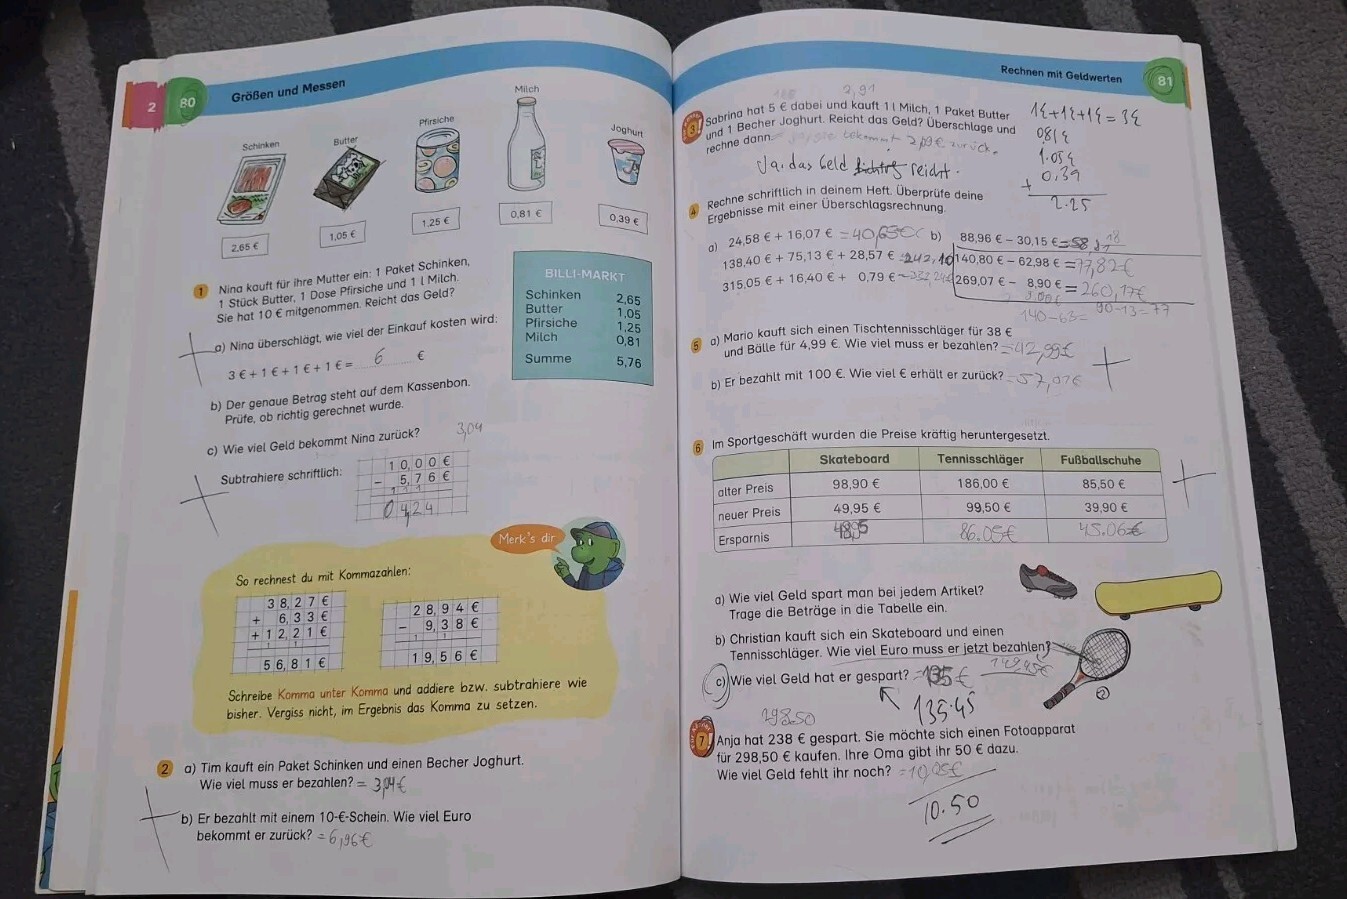 2
80
Größen und Messen
Schinken
Butter
Pfirsiche
Milch
Joghurt
2,65 €
1,05 €
1,25 €
0,81 €
0,39 €
1 Nina kauft für ihre Mutter ein: 1 Paket Schinken,
1 Stück Butter, 1 Dose Pfirsiche und 1 l Milch.
Sie hat 10 € mitgenommen. Reicht das Geld?
a) Nina überschlägt, wie viel der Einkauf kosten wird:
3 € + 1 € + 1 € + 1 € = 6 €
b) Der genaue Betrag steht auf dem Kassenbon.
Prüfe, ob richtig gerechnet wurde.
c) Wie viel Geld bekommt Nina zurück? 3,04
Subtrahiere schriftlich:
10,00 €
- 5,76 €
1 1 1
04,24
BILLI-MARKT
Schinken 2,65
Butter 1,05
Pfirsiche 1,25
Milch 0,81
Summe 5,76
Merk's dir
So rechnest du mit Kommazahlen:
38,27 €
+ 6,33 €
+ 12,21 €
1 1
56,81 €
28,94 €
- 9,38 €
1 1
19,56 €
Schreibe Komma unter Komma und addiere bzw. subtrahiere wie
bisher. Vergiss nicht, im Ergebnis das Komma zu setzen.
2 a) Tim kauft ein Paket Schinken und einen Becher Joghurt.
Wie viel muss er bezahlen? = 3,04 €
b) Er bezahlt mit einem 10-€-Schein. Wie viel Euro
bekommt er zurück? = 6,96 €
Rechnen mit Geldwerten
81
2,91
3 Sabrina hat 5 € dabei und kauft 1 l Milch, 1 Paket Butter
und 1 Becher Joghurt. Reicht das Geld? Überschlage und
rechne dann.
Ja, das Geld reicht.
1€+1€+1€=3€
0,81€
1.05€
0,39
+
2.25
4 Rechne schriftlich in deinem Heft. Überprüfe deine
Ergebnisse mit einer Überschlagsrechnung.
a) 24,58 € + 16,07 € = 40,65€
138,40 € + 75,13 € + 28,57 € = 242,10
315,05 € + 16,40 € + 0,79 € = 332,24€
b) 88,96 € − 30,15 € = 58,81
140,80 € − 62,98 € = 77,82€
269,07 € − 8,90 € = 260,17€
140-63= 90-13=77
5 a) Mario kauft sich einen Tischtennisschläger für 38 €
und Bälle für 4,99 €. Wie viel muss er bezahlen? = 42,99€
b) Er bezahlt mit 100 €. Wie viel € erhält er zurück? = 57,01€
6 Im Sportgeschäft wurden die Preise kräftig heruntergesetzt.
Skateboard Tennisschläger Fußballschuhe
alter Preis 98,90 € 186,00 € 85,50 €
neuer Preis 49,95 € 99,50 € 39,90 €
Ersparnis 48,95 86.05€ 45.06€
a) Wie viel Geld spart man bei jedem Artikel?
Trage die Beträge in die Tabelle ein.
b) Christian kauft sich ein Skateboard und einen
Tennisschläger. Wie viel Euro muss er jetzt bezahlen?
149,45€
c) Wie viel Geld hat er gespart? = 135 €
135.45
298.50
7 Anja hat 238 € gespart. Sie möchte sich einen Fotoapparat
für 298,50 € kaufen. Ihre Oma gibt ihr 50 € dazu.
Wie viel Geld fehlt ihr noch? = 10,05€
10.50